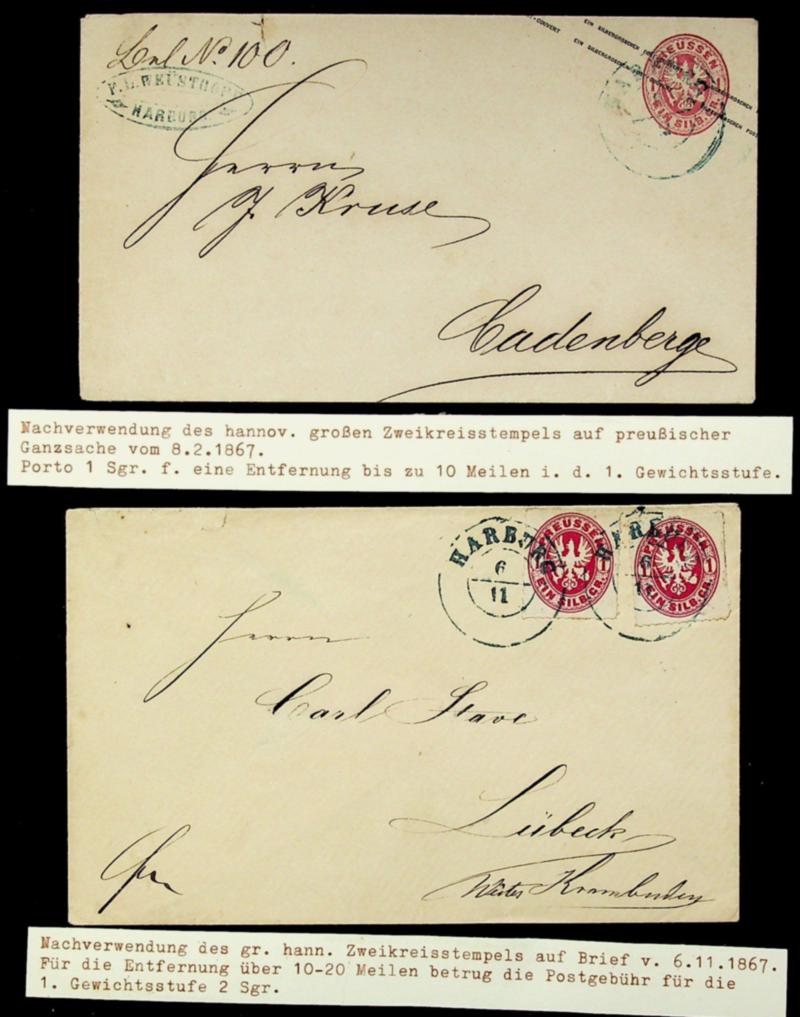 Bel No. 100.
HARBURG.
EIN SILBERGROSCHEN
PREUSSEN
1 1
EIN SILB. GR.
Herrn
J. Kruse
Cadenberge
Nachverwendung des hannov. großen Zweikreisstempels auf preußischer
Ganzsache vom 8.2.1867.
Porto 1 Sgr. f. eine Entfernung bis zu 10 Meilen i. d. 1. Gewichtsstufe.
HARBURG
6
11
PREUSSEN
1 1
EIN SILB. GR.
PREUSSEN
1 1
EIN SILB. GR.
Herrn
Carl Stave
Lübeck
Nachverwendung des gr. hann. Zweikreisstempels auf Brief v. 6.11.1867.
Für die Entfernung über 10-20 Meilen betrug die Postgebühr für die
1. Gewichtsstufe 2 Sgr.